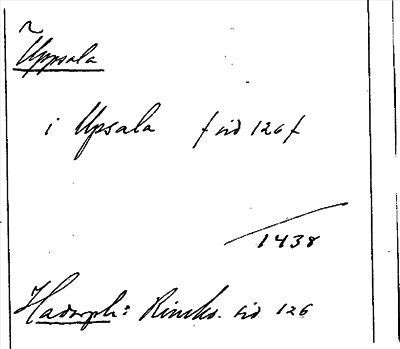 Uppsala
i Upsala f sid 126 f
1438
Hadorph: Rimkr. sid 126